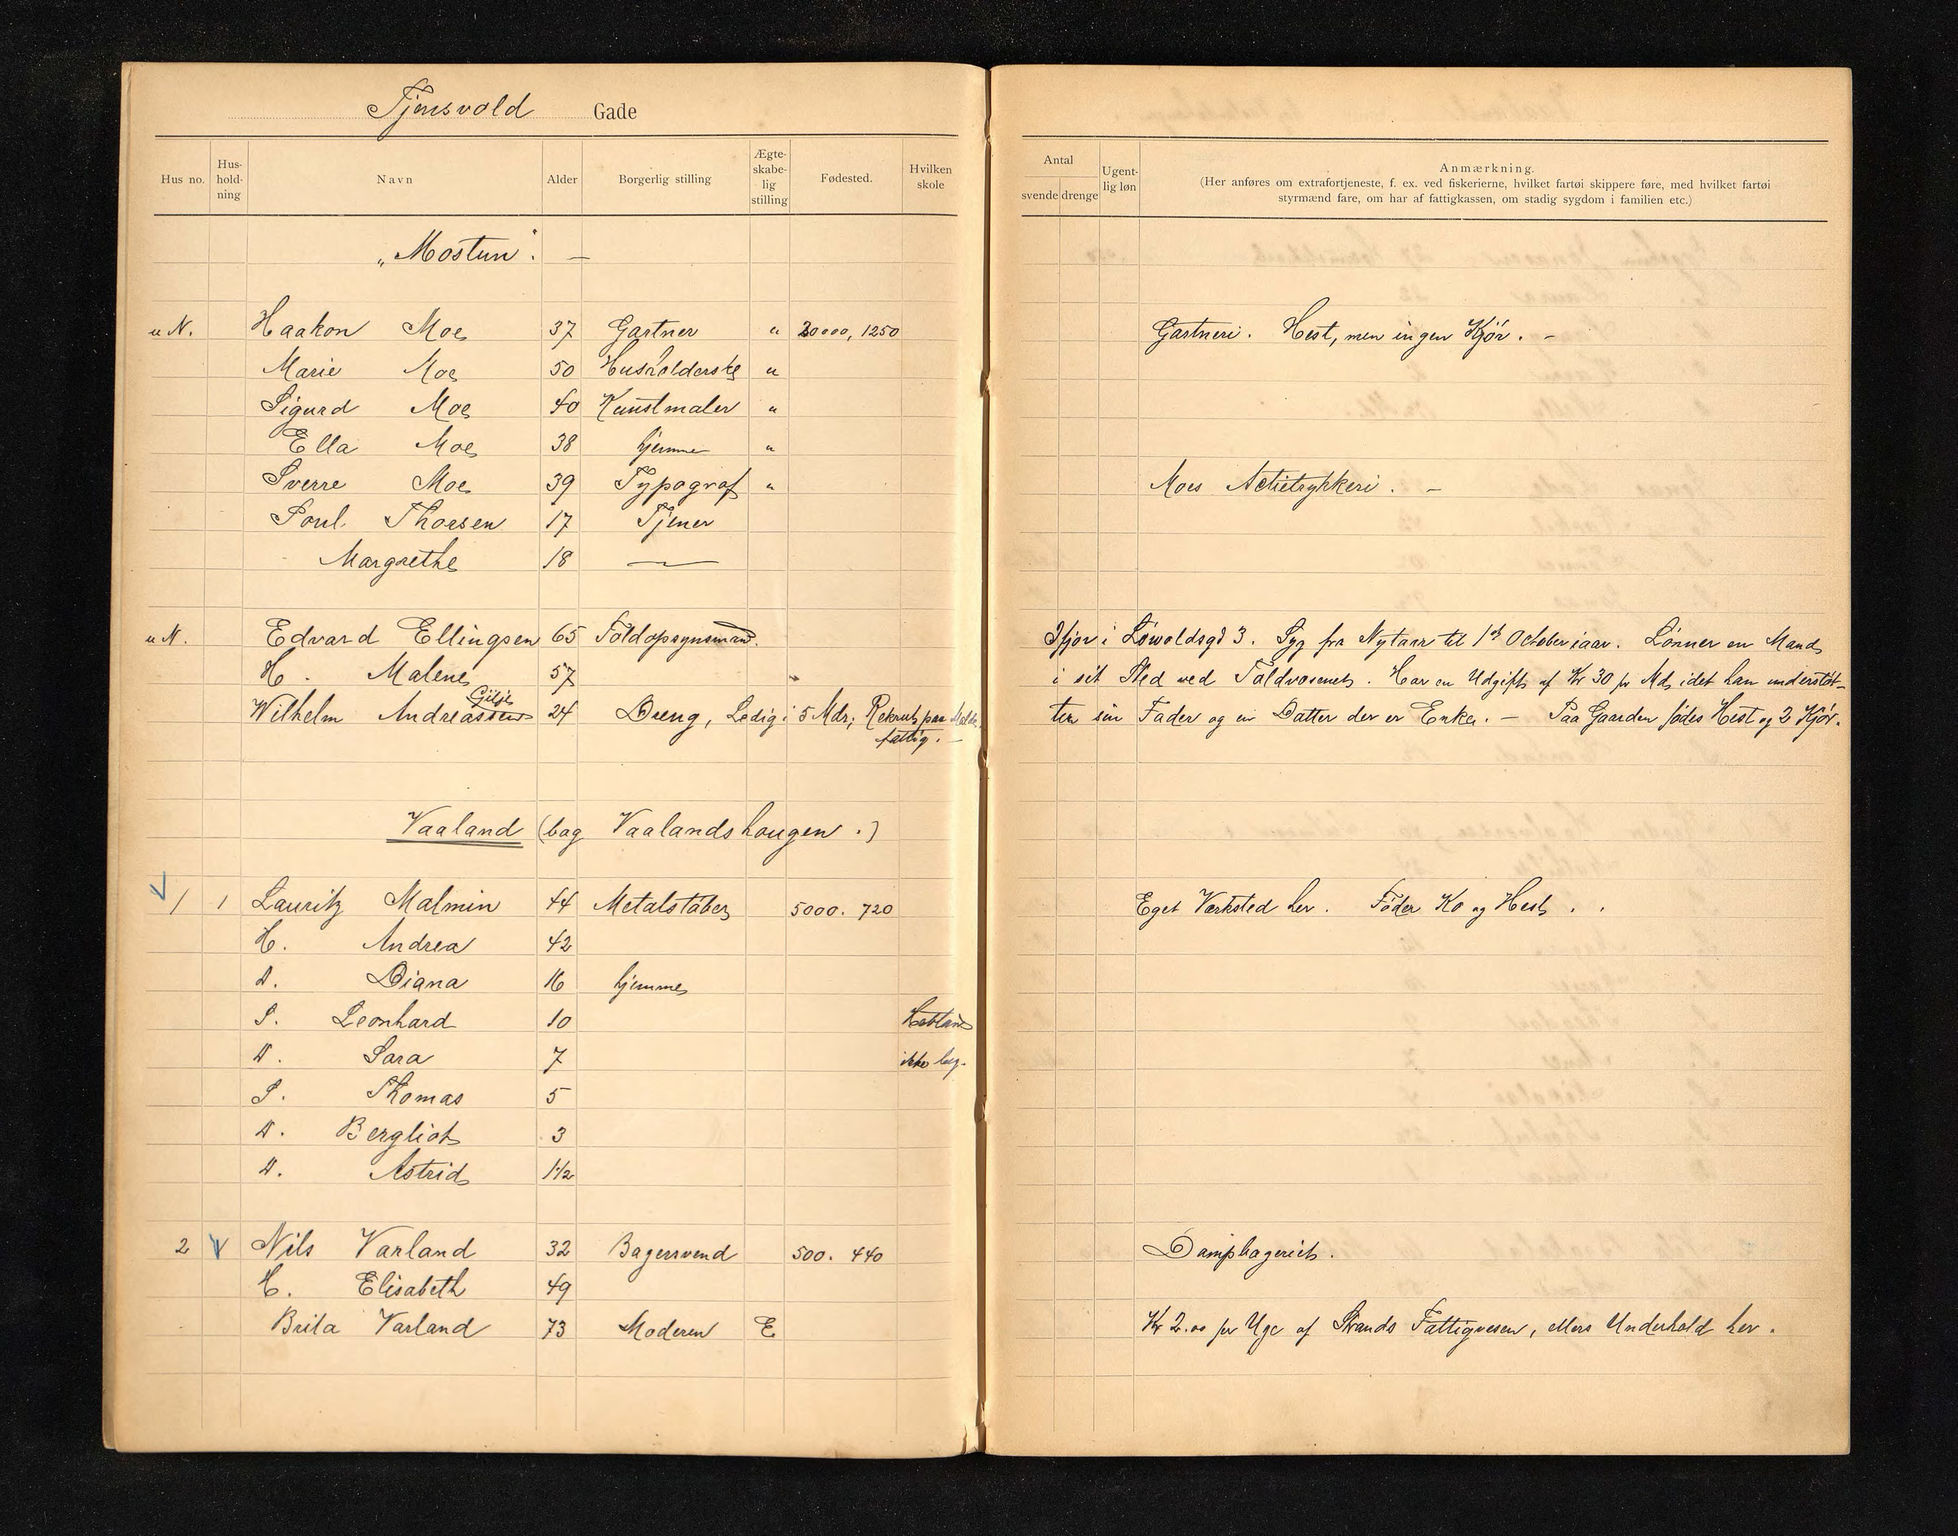 Tjensvold Gade
Hus no. Hus-hold-ning Navn Alder Borgerlig stilling Ægte-skabe-lig stilling Fødested. Hvilken skole
Antal svende drenge Ugent-lig løn Anmærkning.
(Her anføres om extrafortjeneste, f. ex. ved fiskerierne, hvilket fartøi skippere føre, med hvilket fartøi
styrmænd fare, om har af fattigkassen, om stadig sygdom i familien etc.)
„Mostun". —
u N. Haakon Moe 37 Gartner u 20000, 1250 Gartneri. Hest, men ingen Kjør. –
Marie Moe 50 Husholderske u
Sigurd Moe 40 Kunstmaler u
Ella Moe 38 hjemme u
Sverre Moe 39 Typograf u Moes Actietrykkeri. –
Poul Thorsen 17 Tjener
Margrethe 18 —
u N. Edvard Ellingsen 65 Toldopsynsmand. Ifjor i Løwoldsgd 3. Syg fra Nytaar til 1st October iaar. Lønner en Mand
H. Malene 57 i sit Sted ved Toldvæsenet. Har en Udgift af Kr 30 pr Md, idet han understøt-
Gilje
Wilhelm Andreassen 24 Dreng, Ledig i 5 Mdr, Rekrut paa ter sin Fader og en Datter der er Enke. — Paa Gaarden fødes Hest og 2 Kjør.
fattig. —
Vaaland (bag Vaalandshaugen.)
1 1 Lauritz Malmin 44 Metalstøber 5000. 720 Eget Værksted her. Føder Ko og Hest.
H. Andrea 42
D. Diana 16 hjemme
S. Leonhard 10
D. Sara 7 ikke beg.
S. Thomas 5
D. Bergliot 3
D. Astrid 1 1/2
2 Nils Varland 32 Bagersvend 500. 440 Dampbageriet.
H. Elisabeth 49
Brita Varland 73 Moderen E Kr 2.00 per Uge af Strands Fattigvesen, ellers Underhold her.